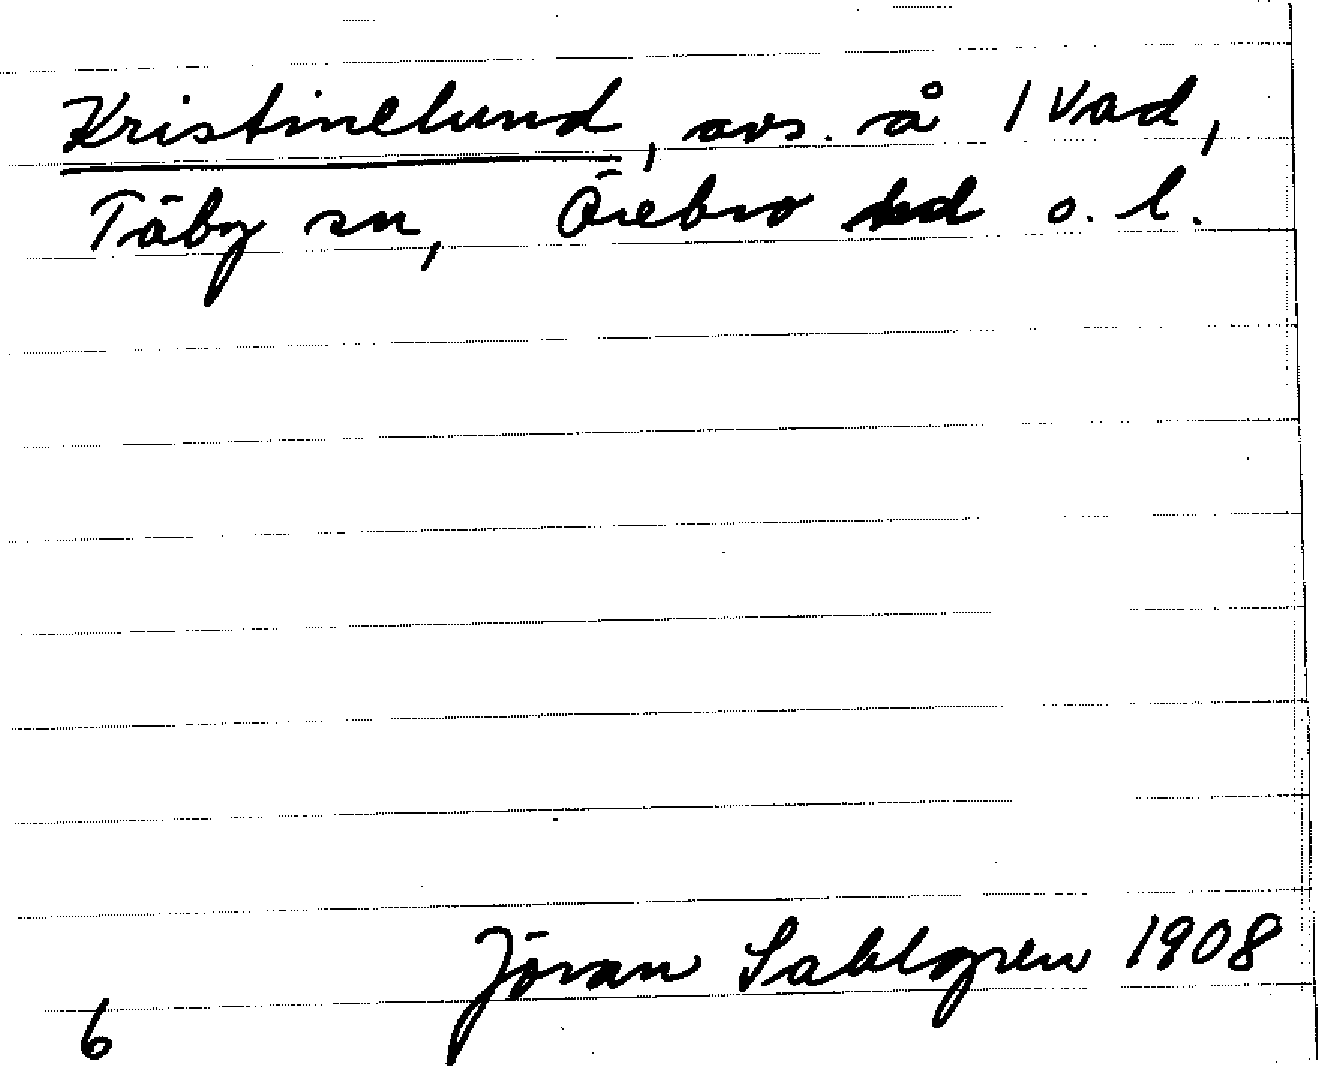 Kristinelund, avs. å 1 Vad,
Täby sn, Örebro hd o. l.
Jöran Sahlgren 1908
6